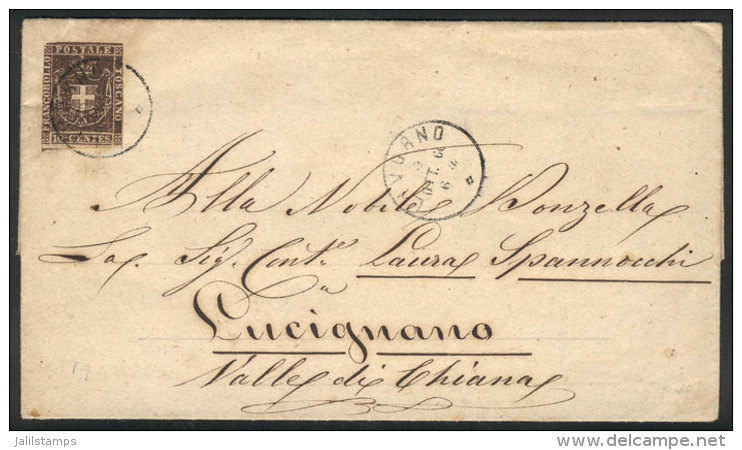 FRANCOBOLLO
POSTALE
TOSCANO
10 CENTES
LIVORNO
Alla Nobile Donzella
La Sig.ᵃ Cont.ᵃ Laura Spannocchi
Lucignano
Valle di Chiana
jalilstamps
www.delcampe.net